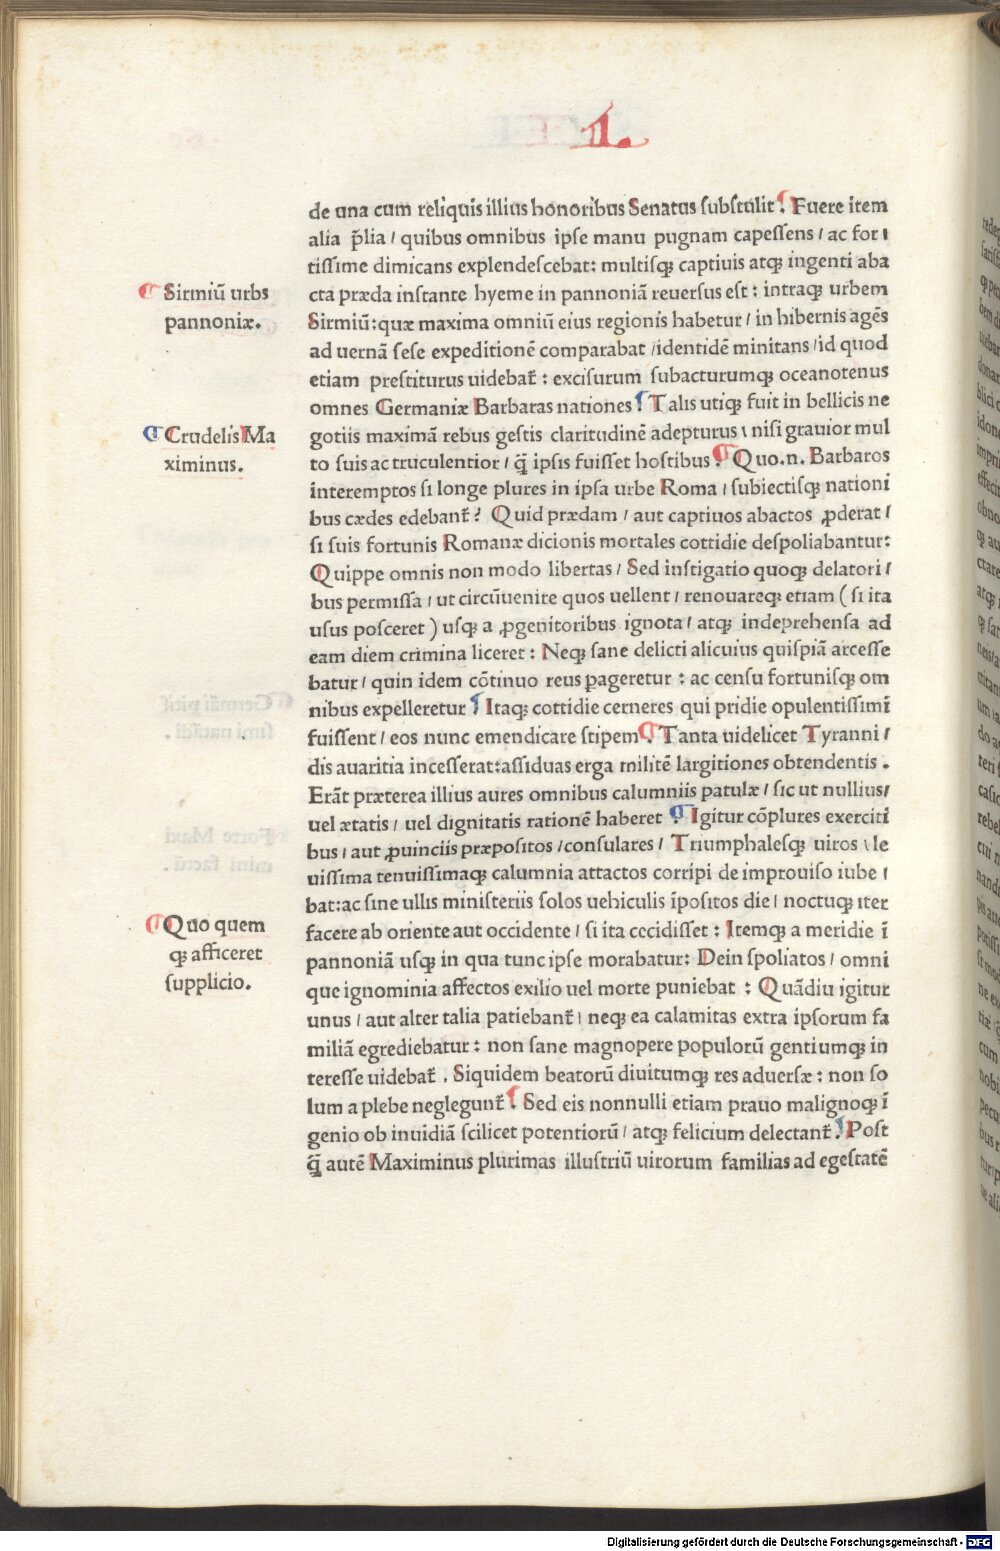 1.
de una cum reliquis illius honoribus Senatus ſubſtulit. Fuere item
alia p̄lia / quibus omnibus ipſe manu pugnam capeſſens / ac for /
tiſſime dimicans explendeſcebat: multiſqꝫ captiuis atqꝫ ingenti aba
cta præda inſtante hyeme in pannoniā reuerſus eſt : intraqꝫ urbem
Sirmiū: quæ maxima omniū eius regionis habetur / in hibernis agēs
ad uernā ſeſe expeditionē comparabat / identidē minitans / id quod
etiam preſtiturus uidebat̄ : exciſurum ſubacturumqꝫ oceanotenus
omnes Germaniæ Barbaras nationes. Talis utiqꝫ fuit in bellicis ne
gotiis maximā rebus geſtis claritudinē adepturus / niſi grauior mul
to ſuis ac truculentior / q̄ ipſis fuiſſet hoſtibus. Quo.n. Barbaros
interemptos ſi longe plures in ipſa urbe Roma / ſubiectiſqꝫ nationi
bus cædes edebant̄? Quid prædam / aut captiuos abactos ꝓderat /
ſi ſuis fortunis Romanæ dicionis mortales cottidie deſpoliabantur:
Quippe omnis non modo libertas / Sed inſtigatio quoqꝫ delatori /
bus permiſſa / ut circūuenire quos uellent / renouareqꝫ etiam ( ſi ita
uſus poſceret ) uſqꝫ a ꝓgenitoribus ignota / atqꝫ indeprehenſa ad
eam diem crimina liceret : Neqꝫ ſane delicti alicuius quiſpiā arceſſe
batur / quin idem cōtinuo reus pageretur : ac cenſu fortuniſqꝫ om
nibus expelleretur. Itaqꝫ cottidie cerneres qui pridie opulentiſſimi
fuiſſent / eos nunc emendicare ſtipem. Tanta uidelicet Tyranni /
dis auaritia inceſſerat: aſſiduas erga militē largitiones obtendentis .
Erāt præterea illius aures omnibus calumniis patulæ / ſic ut nullius /
uel ætatis / uel dignitatis rationē haberet. Igitur cōplures exerciti
bus / aut ꝓuinciis præpoſitos / conſulares / Triumphaleſqꝫ uiros / le
uiſſima tenuiſſimaqꝫ calumnia attactos corripi de improuiſo iube /
bat: ac ſine ullis miniſteriis ſolos uehiculis īpoſitos die / noctuqꝫ iter
facere ab oriente aut occidente / ſi ita cecidiſſet : Itemqꝫ a meridie ī
pannoniā uſqꝫ in qua tunc ipſe morabatur: Dein ſpoliatos / omni
que ignominia affectos exilio uel morte puniebat : Quādiu igitur
unus / aut alter talia patiebant̄ / neqꝫ ea calamitas extra ipſorum fa
miliā egrediebatur : non ſane magnopere populorū gentiumqꝫ in
tereſſe uidebat̄ . Siquidem beatorū diuitumqꝫ res aduerſæ : non ſo
lum a plebe neglegunt̄. Sed eis nonnulli etiam prauo malignoqꝫ ī
genio ob inuidiā ſcilicet potentiorū / atqꝫ felicium delectant̄. Poſt
q̄ autē Maximinus plurimas illuſtriū uirorum familias ad egeſtatē
Sirmiū urbs
pannoniæ.
Crudelis Ma
ximinus.
Quo quem
qꝫ afficeret
ſupplicio.
Digitalisierung gefördert durch die Deutsche Forschungsgemeinschaft - DFG